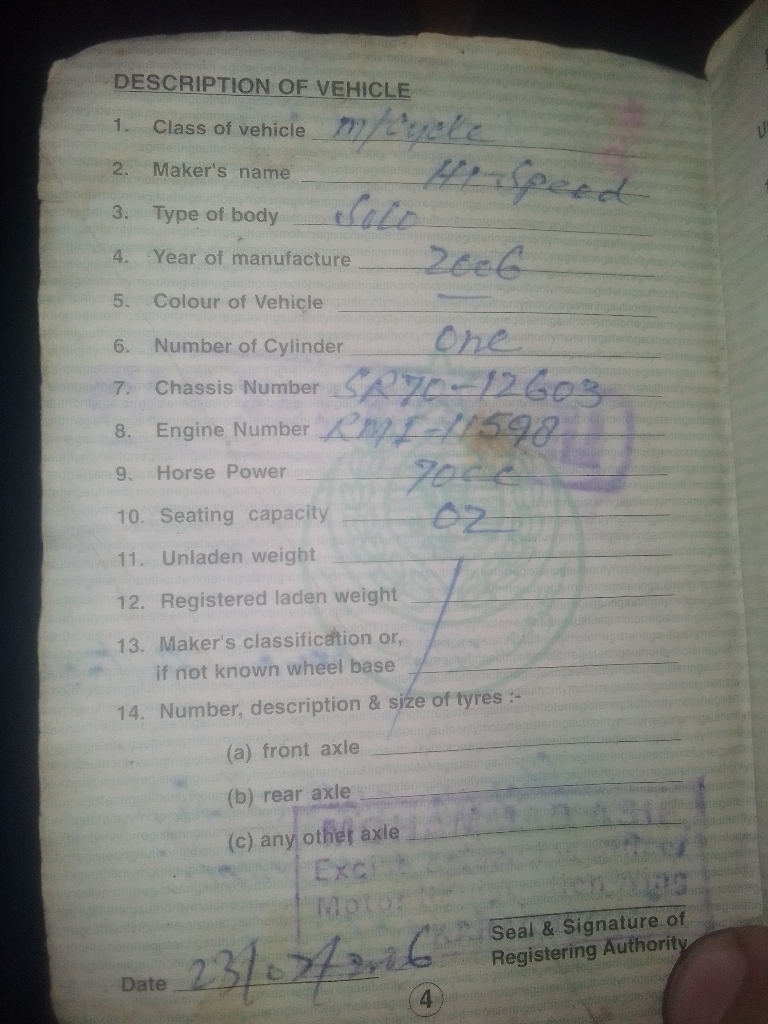 DESCRIPTION OF VEHICLE
1. Class of vehicle m/cycle
2. Maker's name Hi-Speed
3. Type of body Solo
4. Year of manufacture 2006
5. Colour of Vehicle —
6. Number of Cylinder one
7. Chassis Number SR70-12603
8. Engine Number RMI-11598
9. Horse Power 70cc
10. Seating capacity 02
11. Unladen weight
12. Registered laden weight
13. Maker's classification or,
if not known wheel base
14. Number, description & size of tyres :-
(a) front axle
(b) rear axle
(c) any other axle
MOHAMMAD
Motor
Seal & Signature of
Registering Authority
Date 23/07/2006
4